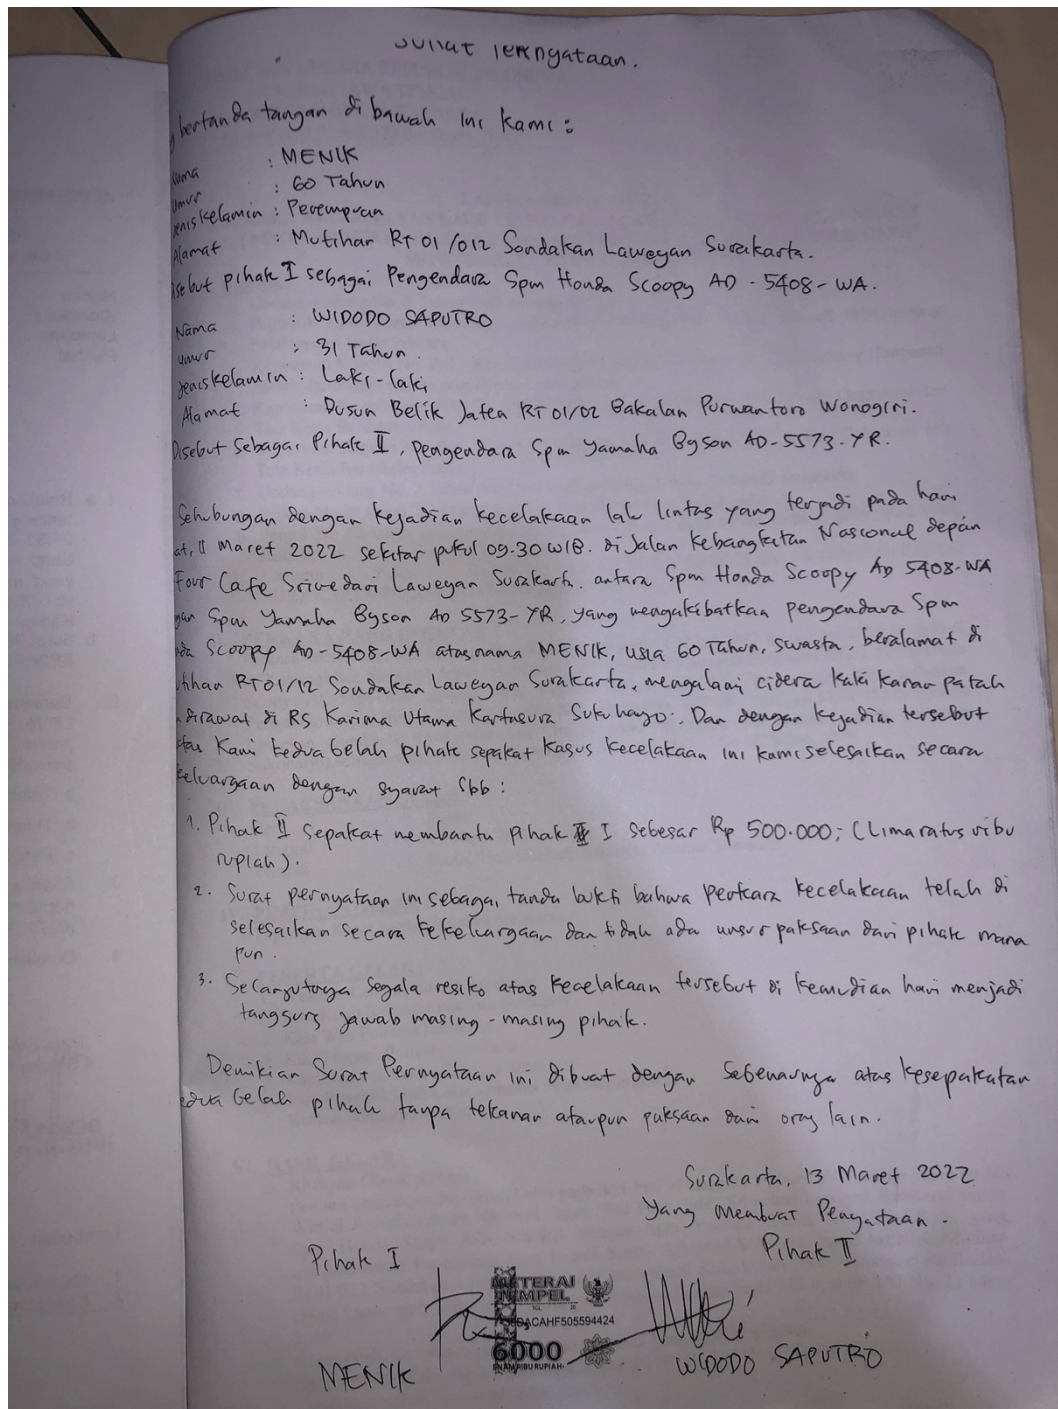 Surat Pernyataan.
bertanda tangan di bawah ini kami :
Nama : MENIK
Umur : 60 Tahun
Jenis kelamin : Perempuan
Alamat : Mutihan RT 01/012 Sondakan Laweyan Surakarta.
isebut pihak I sebagai Pengendara Spm Honda Scoopy AD - 5408 - WA.
Nama : WIDODO SAPUTRO
Umur : 31 Tahun.
Jenis kelamin : Laki-laki
Alamat : Dusun Belik Jaten RT 01/02 Bakalan Purwantoro Wonogiri.
Disebut Sebagai Pihak II, pengendara Spm Yamaha Byson AD-5573-YR.
Sehubungan dengan kejadian kecelakaan lalu lintas yang terjadi pada hari
at, 11 Maret 2022 sekitar pukul 09.30 WIB. di Jalan Kebangkitan Nasional depan
Four Cafe Sriwedari Laweyan Surakarta. antara Spm Honda Scoopy AD 5408-WA
gan Spm Yamaha Byson AD 5573-YR, yang mengakibatkan pengendara Spm
nda Scoopy AD-5408-WA atas nama MENIK, usia 60 Tahun, swasta, beralamat di
utihan RT01/12 Sondakan Laweyan Surakarta, mengalami cidera kaki kanan patah
dirawat di RS Karima Utama Kartasura Sukoharjo. Dan dengan kejadian tersebut
atas Kami kedua belah pihak sepakat kasus kecelakaan ini kami selesaikan secara
keluargaan dengan syarat sbb :
1. Pihak II sepakat membantu pihak I sebesar Rp 500.000; (Lima ratus ribu
rupiah).
2. Surat pernyataan ini sebagai tanda bukti bahwa perkara kecelakaan telah di
selesaikan secara kekeluargaan dan tidak ada unsur paksaan dari pihak mana
pun.
3. Selanjutnya segala resiko atas kecelakaan tersebut di kemudian hari menjadi
tanggung jawab masing-masing pihak.
Demikian Surat Pernyataan ini dibuat dengan Sebenarnya atas kesepakatan
edua belah pihak tanpa tekanan ataupun paksaan dari orang lain.
Surakarta, 13 Maret 2022
Yang Membuat Penyataan.
Pihak I Pihak II
METERAI
TEMPEL
TGL. 20
DACAHF505594424
6000
ENAM RIBU RUPIAH
MENIK WIDODO SAPUTRO